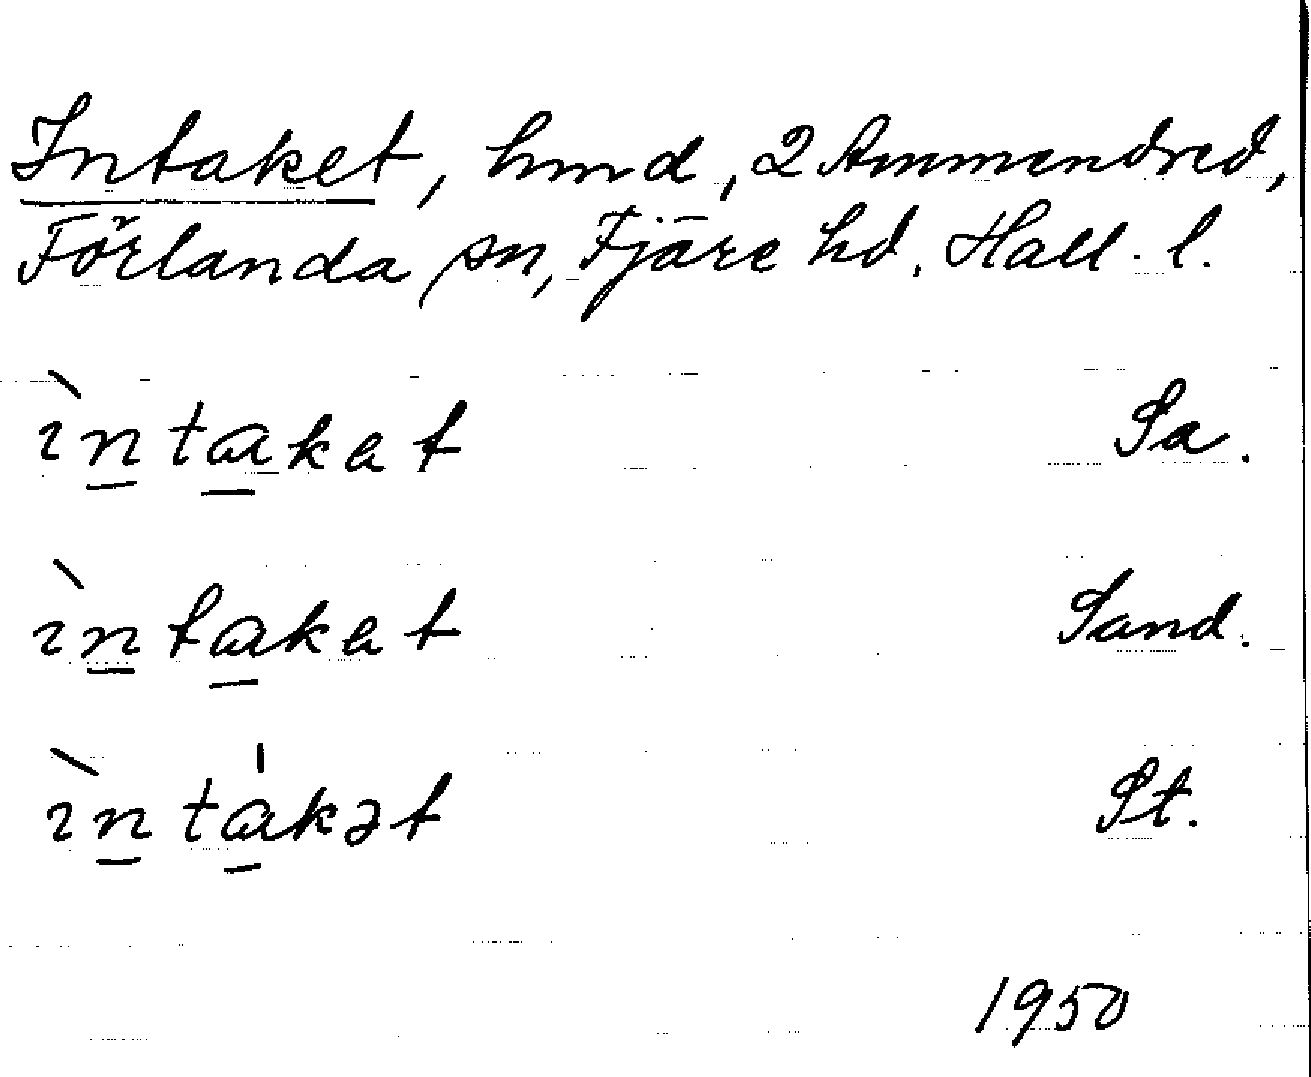 Intaket, hmd, 2 Ammendred,
Förlanda sn, Fjäre hd. Hall. l.
ìntakat Sa.
ìntakat Sand.
ìntákət St.
1950